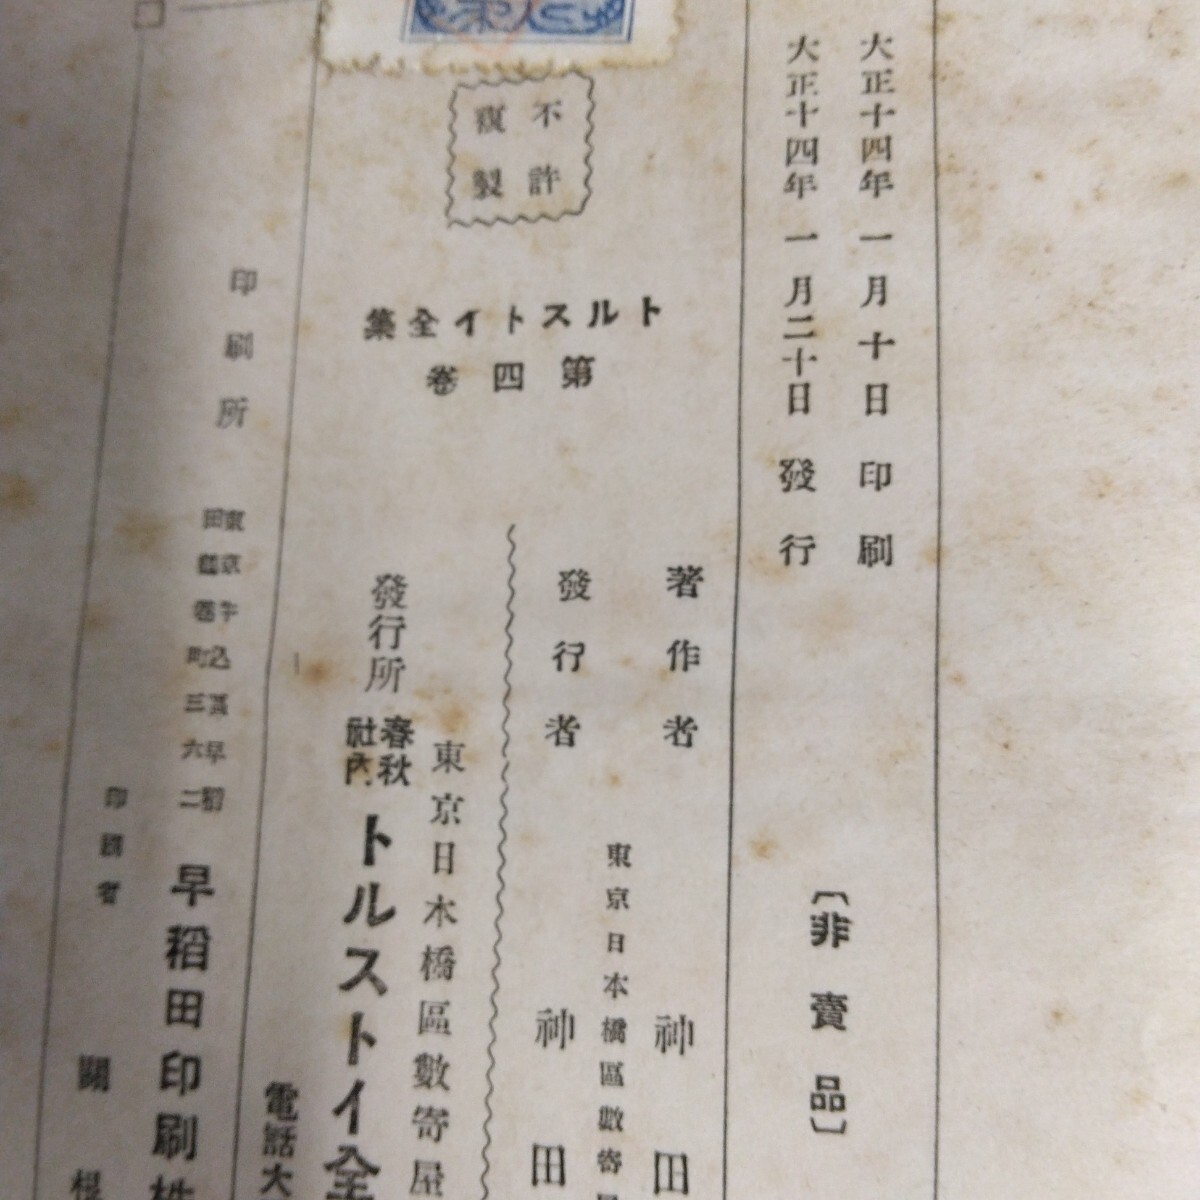 大正十四年一月十日印刷
大正十四年一月二十日發行
〔非賣品〕
不許
複製
トルストイ全集
第四卷
著作者 神田
東京日本橋區數寄屋
發行者 神田
東京日本橋區數寄屋
發行所 春秋社內 トルストイ全
電話大
印刷所 東京牛込區早稻田鶴卷町三六二 早稻田印刷株
印刷者 關根